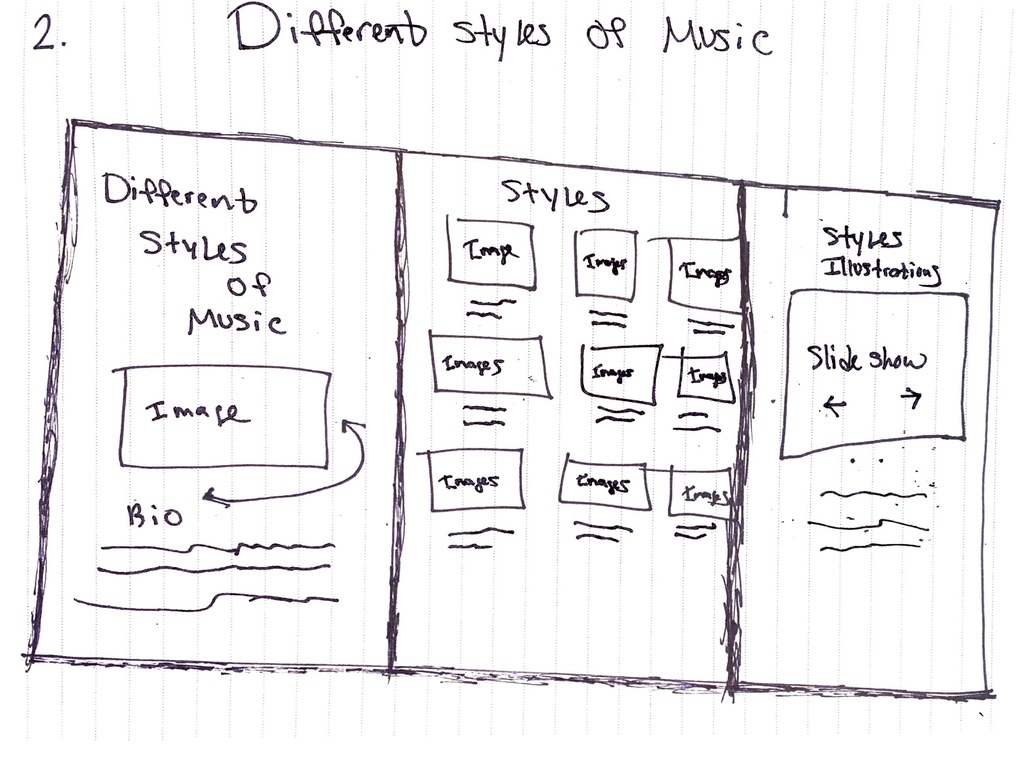 2. Different Styles of Music
Different
Styles
of
Music
Image
Bio
Styles
Image
Images
Images
Images
Images
Images
Images
Images
Images
Styles
Illustrations
Slide show